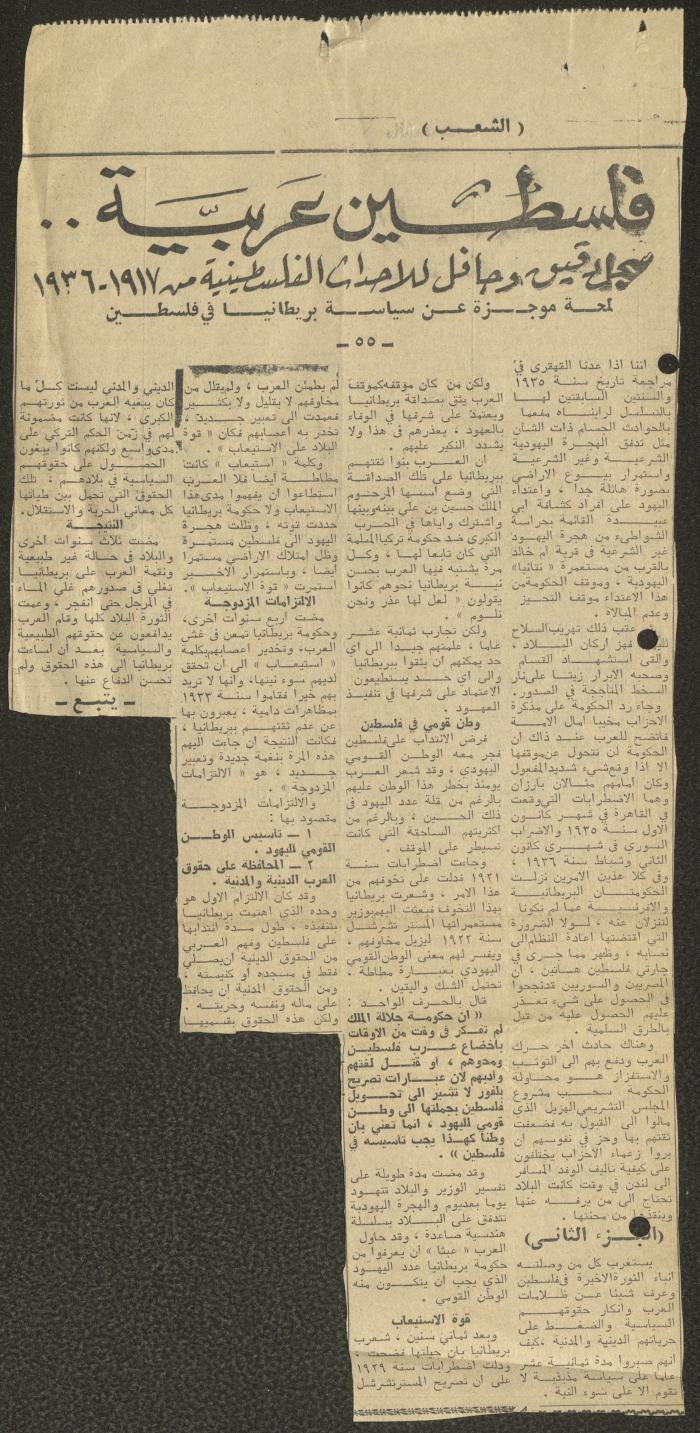 ( الشعـــب )
فلسطـــين عربيـــة ..
سجل دقيق وحافل للاحداث الفلسطينية من ١٩١٧-١٩٣٦
لمحـــة موجــزة عــن سياســـة بريطانيـــا في فلسطـــين
ـ ٥٥ ـ
اننا اذا عدنا القهقرى في
مراجعة تاريخ سنة ١٩٣٥
والسنتين السابقتين لهــا
بالتسلسل لرايناه مفعما
بالحوادث الجسام ذات الشان
مثل تدفق الهجرة اليهودية
الشرعيـــة وغير الشرعيـة
واستمرار بيــوع الاراضي
بصورة هائلة جدا ، واعتداء
اليهود على افراد كشافة ابي
عبيـــدة القائمة بحراسة
الشواطىء من هجرة اليهـود
غير الشرعية في قرية ام خالد
بالقرب من مستعمرة « نتانيا»
اليهودية ، وموقف الحكومةمن
هذا الاعتداء موقف التحيــز
وعدم المبالاة .
عقب ذلك تهريبالسلاح
فهز اركان البـــلاد ،
والقى استشهـــاد القسام
وصحبه الابرار زيتــا علىنار
السخط المتاججة في الصدور.
وجاء رد الحكومة على مذكرة
الاحزاب مخيبا امال الامـــة
فاتضح للعرب عنــد ذاك ان
الحكومة لن تتحول عنموقفها
الا اذا وقعشيء شديدالمفعول
وكان امامهم مثــالان بارزان
وهما الاضطرابات التيوقعت
في القاهرة في شهــر كانــون
الاول سنــة ١٩٣٥ والاضراب
السوري في شهــري كانون
الثاني وشباط سنة ١٩٣٦ ،
وفي كلا هذين الامرين نزلــت
الحكومتـــان البريطانيـــة
والافرنسيــة عما لم تكونا
لتنزلان عنه ، لــولا الضرورة
التي اقتضتها اعادة النظامالى
نصابه ، وظهر مما جــرى في
جارتي فلسطين هـــاتين ، ان
المصريين والسوريين قدنجحوا
في الحصول على شيء تعــذر
عليهم الحصول عليه من قبل
بالطرق السلمية .
وهناك حادث اخر حــرك
العرب ودفع بهم الى التوثــب
والاستفزاز هـــو محـاولة
الحكومة سحــب مشروع
المجلس التشريعي الهزيل الذي
مالوا الى القبول به فضعفت
ثقتهم بها وحز في نفوسهم ان
يروا زعماء الاحزاب يختلفون
على كيفية تاليف الوفد المسافر
الى لندن في وقت كانت البلاد
تحتاج الى من يرفــه عنها
وينقذها من محنتها .
(الجــزء الثاني)
يستغرب كل من وصلتــه
انباء الثورةالاخيرة فيفلسطين
وعرف شيئا عــن ظــلامات
العرب وانكار حقوقهــم
السياسية والضغــط على
حرياتهم الدينية والمدنية ،كيف
انهم صبروا مدة ثمانيــة عشر
عاما على سياسة مذبذبــة لا
تقوم الا على سوء النية .
ولكن من كان موقفه كموقف
العرب يثق بصداقة بريطانيــا
ويعتمد على شرفها في الوفاء
بالعهود ، يعذرهم في هذا ولا
يشدد النكير عليهم .
ان العــرب بنوا ثقتهــم
ببريطانيا على تلك الصداقــة
التي وضع اسسها المرحــوم
الملك حسين بن علي بينهوبينها
واشترك واياها في الحــرب
الكبرى ضد حكومة تركياالمسلمة
التي كان تابعا لهــا ، وكــل
مرة يشتبه فيها العرب بحسن
نيـــة بريطانيا نحوهم كانوا
يقولون « لعل لها عذر ونحن
نلــوم » .
ولكن تجارب ثمانية عشــر
عاما ، علمتهم جيــدا الى اي
حد يمكنهم ان يثقوا ببريطانيا
والى اي حــد يستطيعون
الاعتماد على شرفها في تنفيــذ
العهــود .
وطن قومي في فلسطين
فرض الانتداب علىفلسطين
فجر معه الوطن القــومي
اليهودي ، وقد شعر العــرب
يومئذ بخطر هذا الوطن عليهم
بالرغم من قلة عدد اليهود في
ذلك الحــين ، وبالرغم من
اكثريتهم الساحقة التي كانت
تسيطر على الموقف .
وجاءت اضطرابات سنــة
١٩٢١ فدلت على تخوفهم من
هذا الامر ، وشعرت بريطانيا
بهذا التخوف فبعثت اليهموزير
مستعمراتها المستر تشرشــل
سنة ١٩٢٢ ليزيل مخاوفهم ،
ويفسر لهم معنى الوطنالقومي
اليهودي بعبــارة مطاطة ،
تحتمل الشك واليقين .
قال بالحرف الواحـد :
« ان حكومــة جلالة الملك
لم تفــكر في وقت من الاوقات
باخضاع عــرب فلسطيــن
ومحوهم ، او قتــل لغتهم
وادبهم لان عبــارات تصريح
بلفور لا تشير الى تحــويل
فلسطين بجملتها الى وطــن
قومي لليهود ، انما تعني بان
وطنا كهــذا يجب تاسيسه في
فلسطين » .
وقد مضت مدة طويلة على
تفسير الوزير والبلاد تتهــود
يوما بعديوم والهجرة اليهودية
تتدفق على البــلاد بسلسلة
هندسية صاعدة ، وقد حاول
العرب « عبثا » ان يعرفوا من
حكومة بريطانيا عدد اليهود
الذي يجب ان يتكــون منه
الوطن القومي .
قوة الاستيعاب
وبعد ثماني سنين ، شعــرب
بريطانيا بان حيلتها فضحت ،
ودلت اضطرابات سنة ١٩٢٩
على ان تصريح المسترتشرشل
لم يطمئن العرب ، ولم يقلل من
مخاوفهم لا بقليل ولا بكثيــر
فعمدت الى تعبير جــديد ،
تخدر به اعصابهم فكان « قوة
البلاد على الاستيعاب » .
وكلمة « استيعاب » كانت
مطاطــة ايضا فلا العــرب
استطاعوا ان يفهموا مدىهذا
الاستيعاب ولا حكومة بريطانيا
حددت قوته ، وظلت هجــرة
اليهود الى فلسطين مستمــرة
وظل امتلاك الاراضي مستمرا
ايضا ، وباستمرار الاخــير
استمرت « قوة الاستيعاب ».
الالتزامات المزدوجــة
مضت اربع سنوات اخرى،
وحكومة بريطانيا تمعن في غش
العرب، وتخدير اعصابهمبكلمة
« استيعاب » الى ان تحقق
لديهم سوء نيتها، وانها لا تريد
بهم خيرا فقاموا سنــة ١٩٣٣
بمظاهرات دامية ، يعبرون بها
عن عدم ثقتهــم ببريطانيا ،
فكانت النتيجة ان جاءت اليهم
هذه المرة بنغمة جديدة وتعبير
جــديد ، هو « الالتزامات
المزدوجة » .
والالتزامات المزدوجـــة
مقصود بها :
١ ــ تاسيس الوطـــن
القومي لليهود .
٢ ــ المحافظة على حقوق
العرب الدينية والمدنية .
وقد كان الالتزام الاول هو
وحده الذي اهتمت بريطانيــا
بتنفيذه ، طول مــدة انتدابها
على فلسطين وفهم العــربي
من الحقوق الدينية انيصــلي
فقط في مسجده او كنيسته ،
ومن الحقوق المدنية ان يحافظ
على ماله ونفسه وحريتــه .
ولكن هذه الحقوق بقسميهــا
الديني والمدني ليست كــل ما
كان يبغيه العرب من ثورتهــم
الكبرى ، لانها كانت مضمونة
لهم في زمن الحكم التركي على
مدىواسع ولكنهم كانوا يبغون
الحصــول على حقوقهــم
السياسية في بلادهــم ، تلك
الحقوق التي تحمل بين طياتها
كل معاني الحرية والاستقلال.
النتيجــة
مضت ثلاث سنوات اخرى
والبلاد في حالــة غير طبيعية
ونقمة العرب على بريطانيــا
تغلي في صدورهم غلي المــاء
في المرجل حتى انفجر ، وعمت
الثورة البلاد كلها وقام العرب
يدافعون عن حقوقهم الطبيعية
والسياسية بعــد ان اساءت
بريطانيا الى هذه الحقوق ولم
تحسن الدفاع عنها .
ـ يتبــع ـ